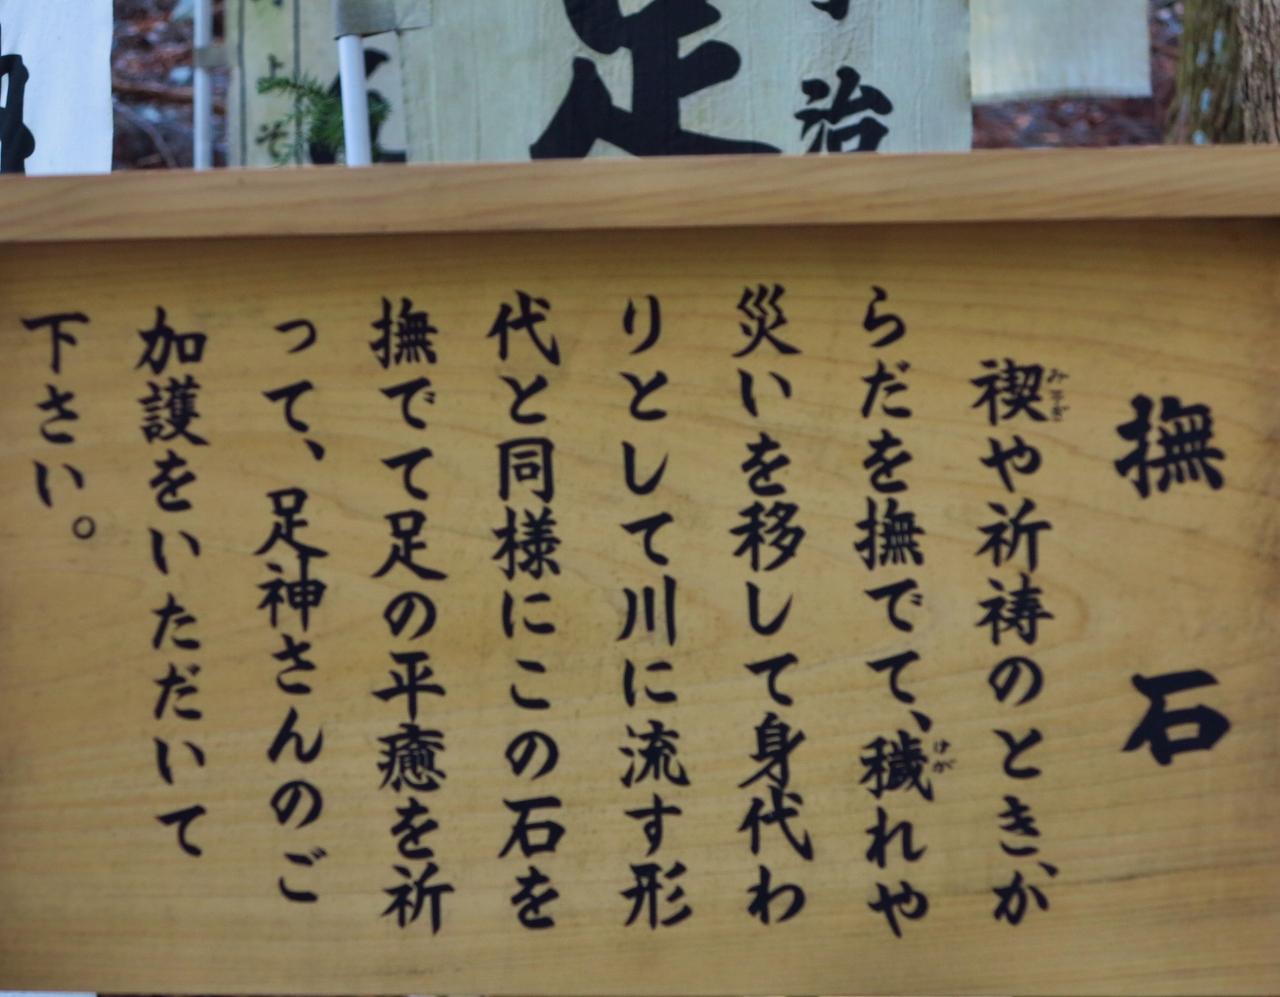 撫石
禊や祈祷のとき、か
らだを撫でて、穢れや
災いを移して身代わ
りとして川に流す形
代と同様にこの石を
撫でて足の平癒を祈
って、足神さんのご
加護をいただいて
下さい。
みそぎ
けが
足
治